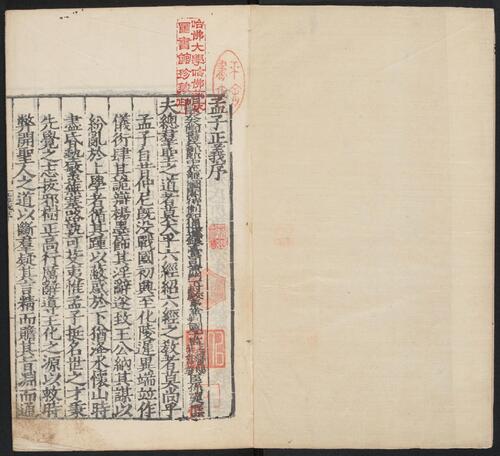 哈佛大學哈佛燕京
圖書館珍藏印
孟子正義序
夫總羣聖之道者莫大乎六經紹六經之教者莫尚乎
孟子自昔仲尼既没戰國初興至化陵遲異端並作
儀衍肆其詭辯楊墨飾其淫辭遂致王公納其謀以
紛亂於上學者循其踵以蔽惑於下猶洚水懷山時
盡昏墊繁蕪塞路孰可芟夷惟孟子挺名世之才秉
先覺之志拔邪樹正高行厲辭導王化之源以救時
弊開聖人之道以斷羣疑其言精而贍其旨淵而通